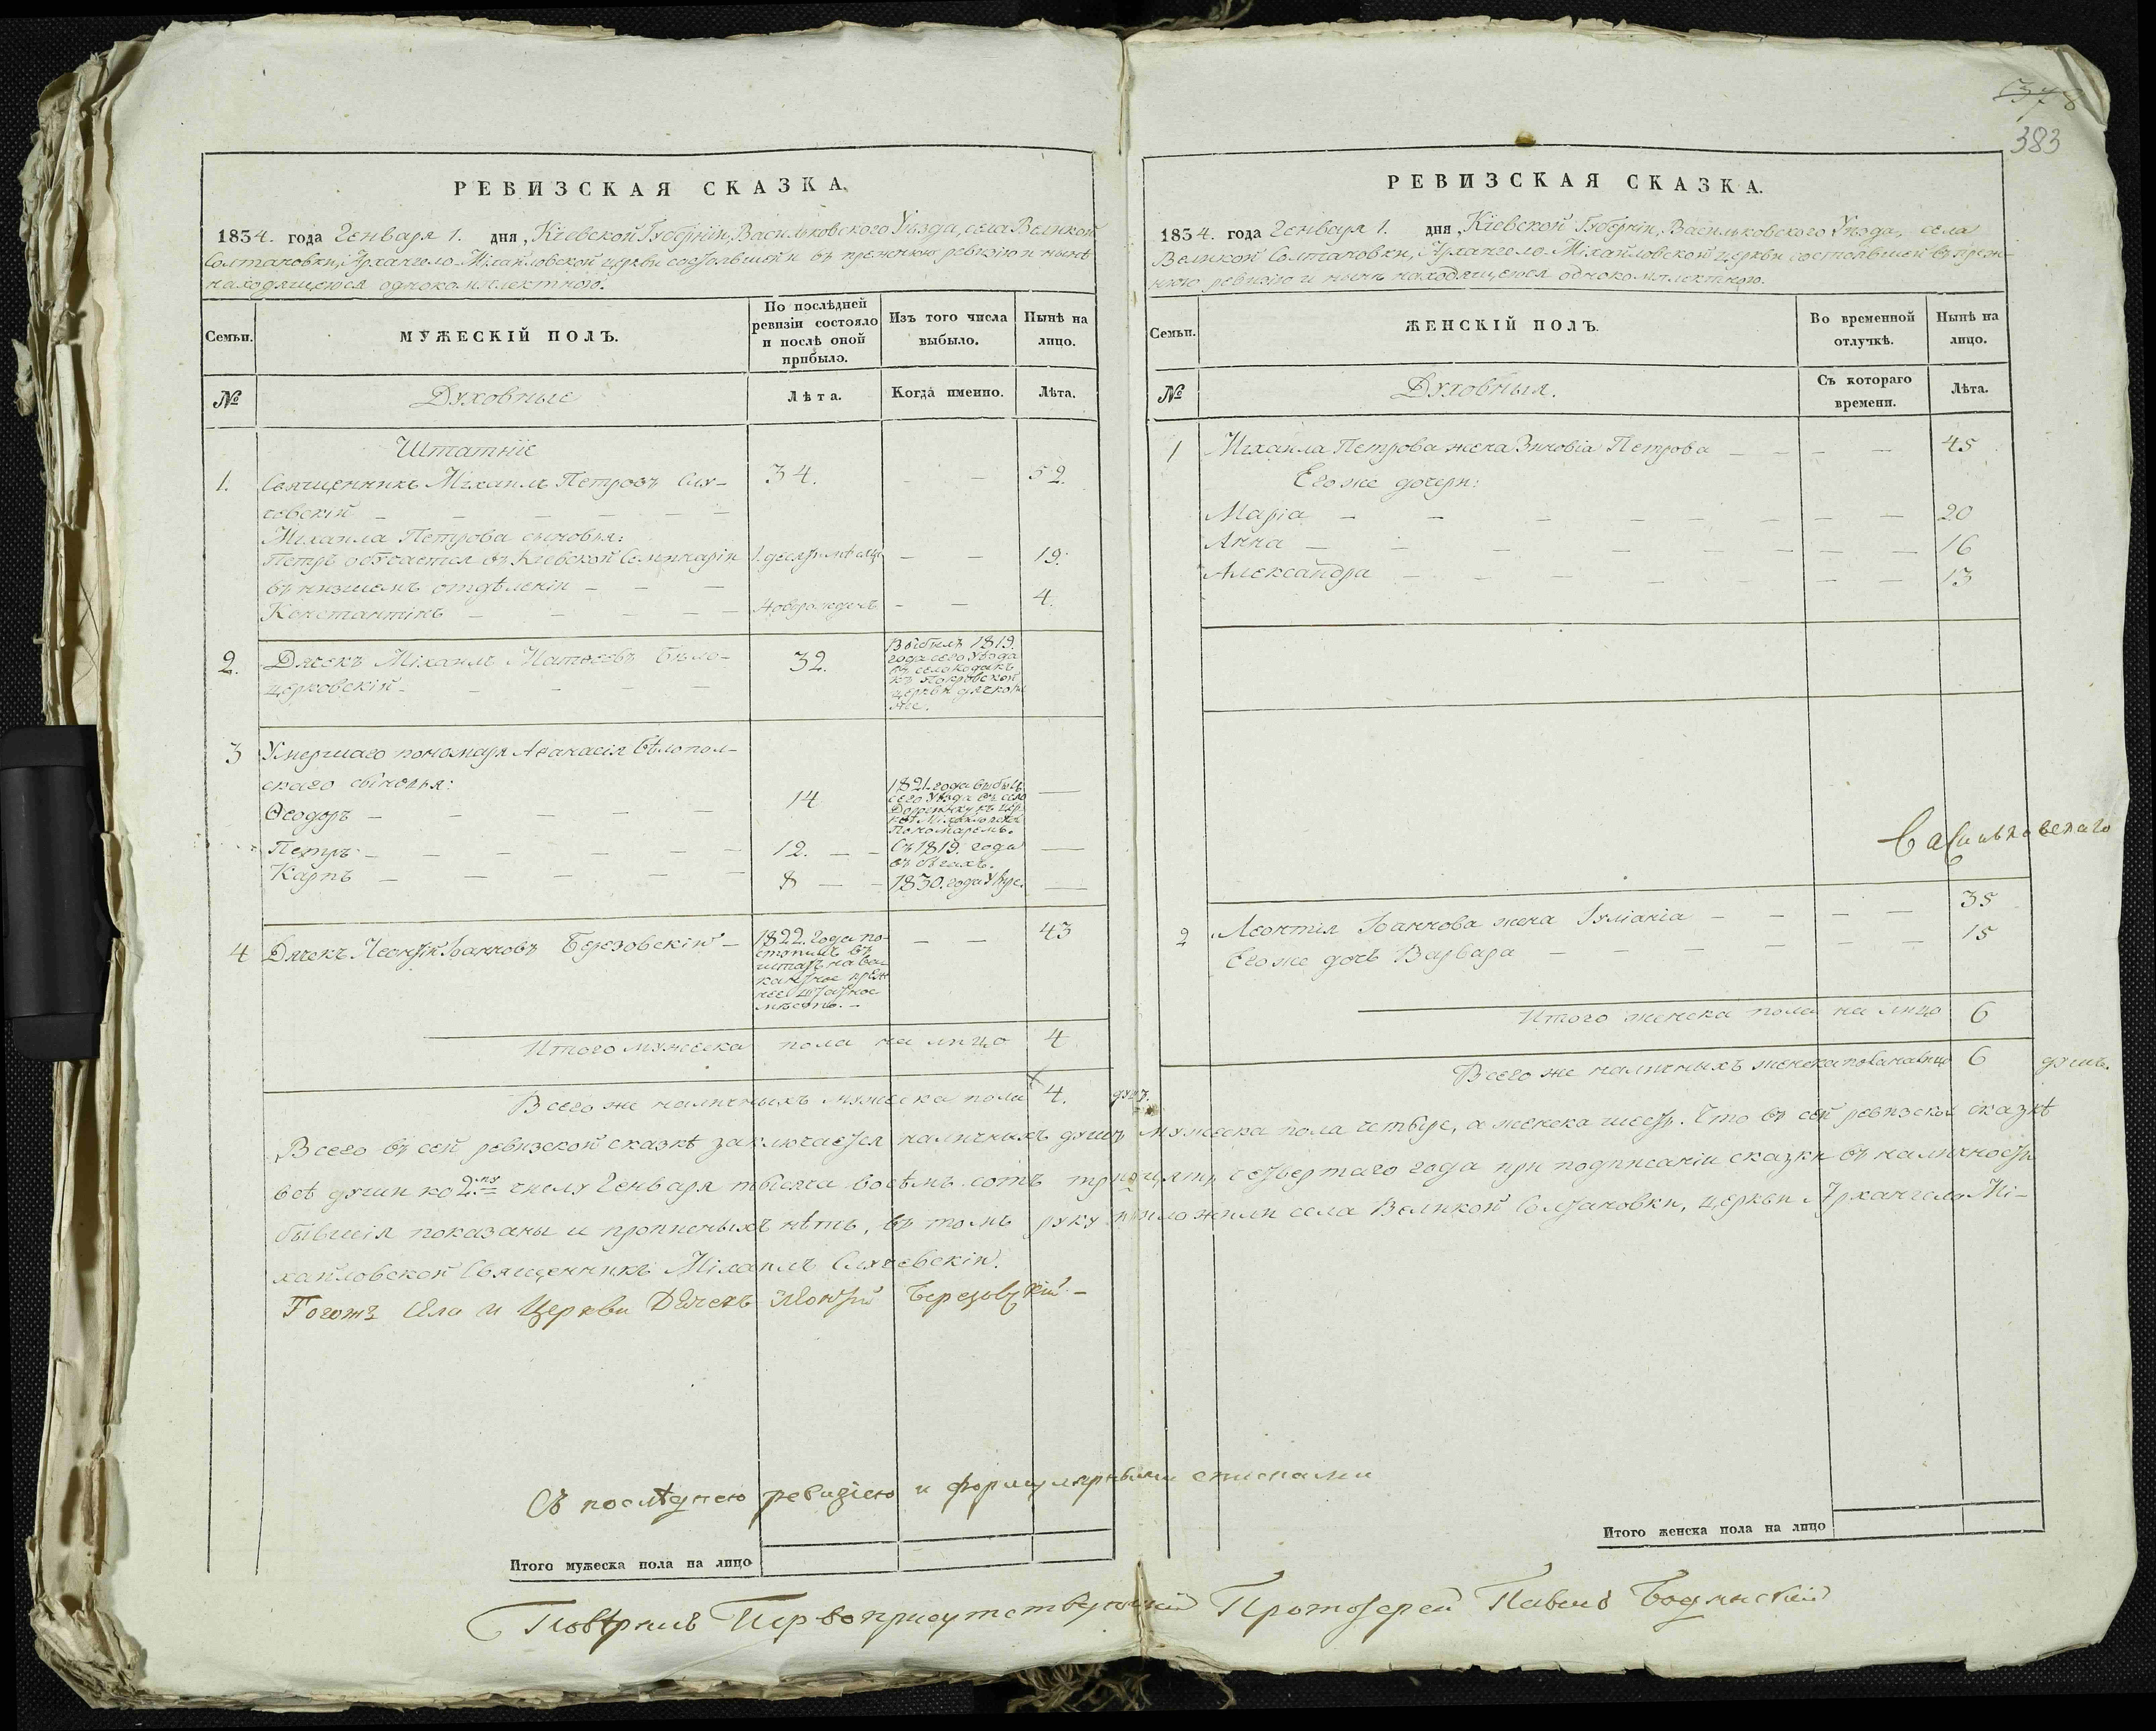 378
383
РЕВИЗСКАЯ СКАЗКА.
1834. года Генваря 1. дня, Кіевской Губерніи, Васильковского Уѣзда, села Великой
Солтановки, Архангело-Міхайловской церкви состоявшей въ прежнюю ревизію и нынѣ
находящеюся однокомплектною.
Семьи.
МУЖЕСКІЙ ПОЛЪ.
По послѣдней ревизіи состояло и послѣ оной прибыло.
Изъ того числа выбыло.
Нынѣ на лицо.
№
Духовные
Лѣта.
Когда именно.
Лѣта.
Штатніе
1. Священникъ Михаилъ Петровъ Слу- 34. - - 52.
чевскій
Михаила Петрова сыновья:
Петръ обучается въ Кіевской Семинаріи 1. десят: мѣсяцъ - - 19.
въ низшемъ отдѣленіи - - -
Константінъ - новорожденъ - - 4.
2. Дячекъ Міхаилъ Матѳеевъ Бѣло- 32.
церковскій
Выбылъ 1819.
года сего Уѣзда
въ село
къ Покровской
церкви дячкомъ
же.
3 Умершаго пономаря Аѳанасія Бѣлопол-
скаго сыновья:
Ѳеодоръ - 14
1821. года выбылъ
сего Уѣзда въ село
къ цер-
квѣ Міхайловской
Пономаремъ.
Петръ - 12.
Съ 1819. года
въ бѣгахъ.
Карпъ - 8 - 1830. года Умре.
4 Дячекъ Леонтій Іоанновъ Березовскій - 43
1822. года по-
ступилъ въ
штатъ на ва-
кантное преж-
нее штатное
мѣсто. -
Итого мужеска пола на лицо 4
Всего же наличныхъ мужеска пола 4. душъ.
РЕВИЗСКАЯ СКАЗКА.
1834. года Генваря 1. дня, Кіевской Губерніи, Васильковского Уѣзда, села
Великой Солтановки, Архангело-Міхайловской церкви состоявшей въ преж-
нюю ревизію и нынѣ находящеюся однокомплектною.
Семьи.
ЖЕНСКІЙ ПОЛЪ.
Во временной отлучкѣ.
Нынѣ на лицо.
№
Духовныя.
Съ котораго времени.
Лѣта.
1 Михаила Петрова жена Зиновіа Петрова - - - - 45
Его же дочери:
Маріа - 20
Анна - 16
Александра - 13
Васильковскаго
2 Леонтія Іоаннова жена Іуліаніа - 35
Его же дочь Варвара - 15
Итого женска пола на лицо 6
Всего же наличныхъ женска пола на лицо 6 душъ.
Всего въ сей ревизской сказкѣ заключается наличныхъ душъ мужеска пола четыре, а женска шесть. Что въ сей ревизской сказкѣ
всѣ души ко 2му числу Генваря тысяча восѣмъ сотъ тридцять четвертаго года при подписаніи сказки въ наличности
бывшія показаны и прописныхъ нѣтъ, въ томъ руку приложили села Великой Солтановки, церкви Архангело-Мі-
хайловской Священникъ Міхаилъ Случевскій.
Тогожъ села и Церкви Дячекъ Леонтій Березовскій -
Съ послѣднею ревизіею и формулярными списками
Итого мужеска пола на лицо
Итого женска пола на лицо
Повѣрилъ Первоприсутствующій Протоіерей Павелъ Бодянскій